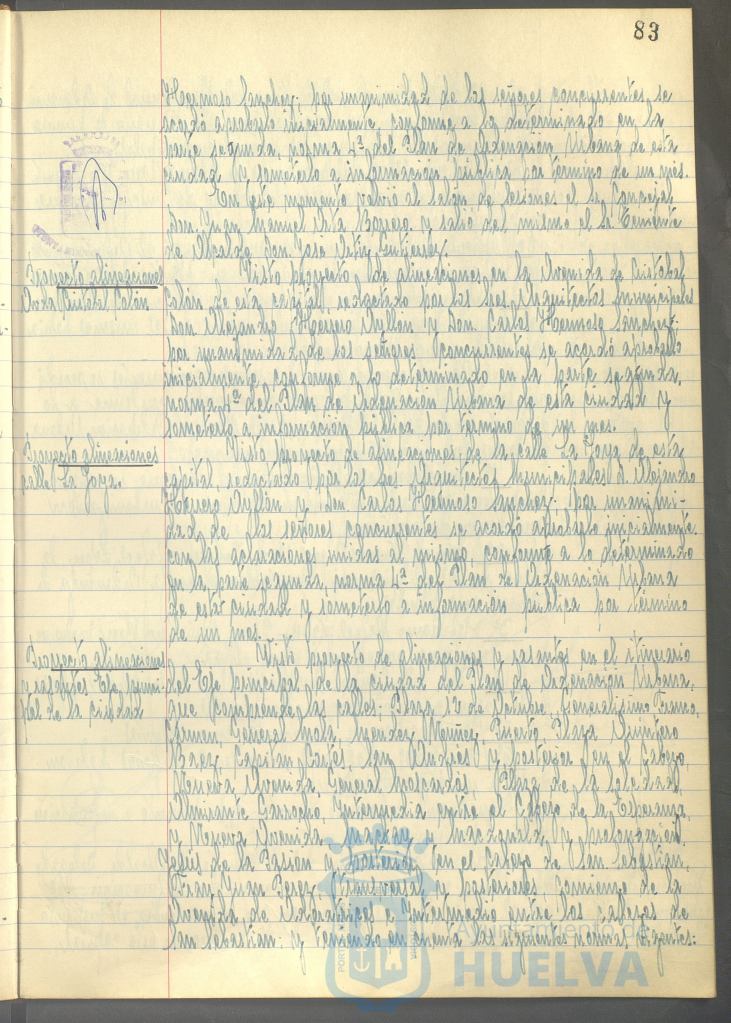 83
Hermoso Sanchez; por unanimidad de los señores concurrentes, se
acordó aprobarlo inicialmente, conforme a lo determinado en la
parte segunda, norma 4ª del Plan de Ordenación Urbana de esta
ciudad y someterlo a información pública por termino de un mes.
En este momento volvió al salón de Sesiones el Sr. Concejal
Don Juan Manuel Borrero y salió del mismo el Sr. Teniente
de Alcalde Don Jose Ortiz Gutierrez.
Proyecto alineaciones
Avda Cristobal Colón
Visto proyecto de alineaciones en la Avenida de Cristobal
Colón de esta capital, redactado por los Sres Arquitectos Municipales
Don Alejandro Herrero Ayllón y Don Carlos Hermoso Sánchez;
por unanimidad de los señores concurrentes se acordó aprobarlo
inicialmente, conforme a lo determinado en la parte segunda,
norma 4ª del Plan de Ordenación Urbana de esta ciudad y
someterlo a información pública por termino de un mes.
Proyecto alineaciones
calle La Joya.
Visto proyecto de alineaciones de la calle La Joya de esta
capital, redactado por los Sres Arquitectos Municipales D. Alejandro
Herrero Ayllón y Don Carlos Hermoso Sanchez; por unanimi-
dad de los señores concurrentes se acordó aprobarlo inicialmente
con las aclaraciones unidas al mismo, conforme a lo determinado
en la parte segunda, norma 4ª del Plan de Ordenación Urbana
de esta ciudad y someterlo a información pública por término
de un mes.
Proyecto alineaciones
y rasantes Eje princi-
pal de la ciudad
Visto proyecto de alineaciones y rasantes en el itinerario
del Eje principal de la ciudad del Plan de Ordenación Urbana,
que comprende las calles; Plaza 12 de Octubre, Generalísimo Franco,
Carmen, General Mola, Mendez Nuñez, Puerto, Plaza Quintero
Baez, Capitan Cortés, San Andrés y posterior en el Cabezo,
Nueva Avenida, General Moscardó, Plaza de la Soledad,
Almirante Garrocho, Intermedia entre el Cabezo de la Esperanza
y Nueva Avenida, Mackay y Macdonald, y prolongación,
Jesús de la Pasion y posterior en el Cabezo de San Sebastian,
Fray Juan Perez, transversal y posteriores, comienzo de la
Avenida de Adoratrices e Intermedio entre los cabezos de
San Sebastian: y teniendo en cuenta las siguientes normas vigentes:
Ayuntamiento de
HUELVA